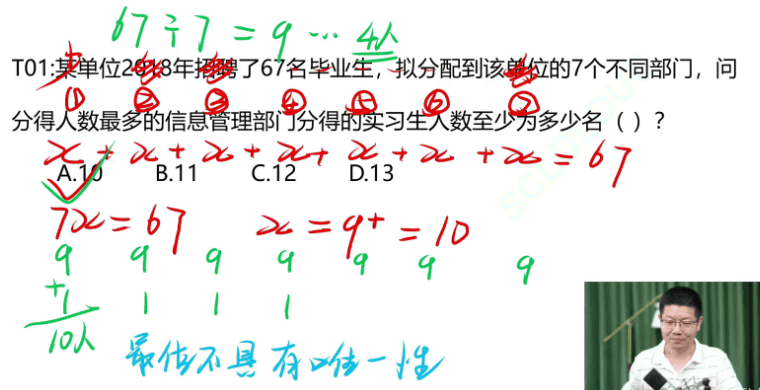 67÷7=9…4人
T01:某单位2018年招聘了67名毕业生，拟分配到该单位的7个不同部门，问
① ② ③ ④ ⑤ ⑥ ⑦
分得人数最多的信息管理部门分得的实习生人数至少为多少名（ ）？
x+x+x+x+x+x+x=67
A.10 B.11 C.12 D.13
7x=67 x=9+=10
9 9 9 9 9 9 9
+1 1 1 1
10人
最值不具有唯一性